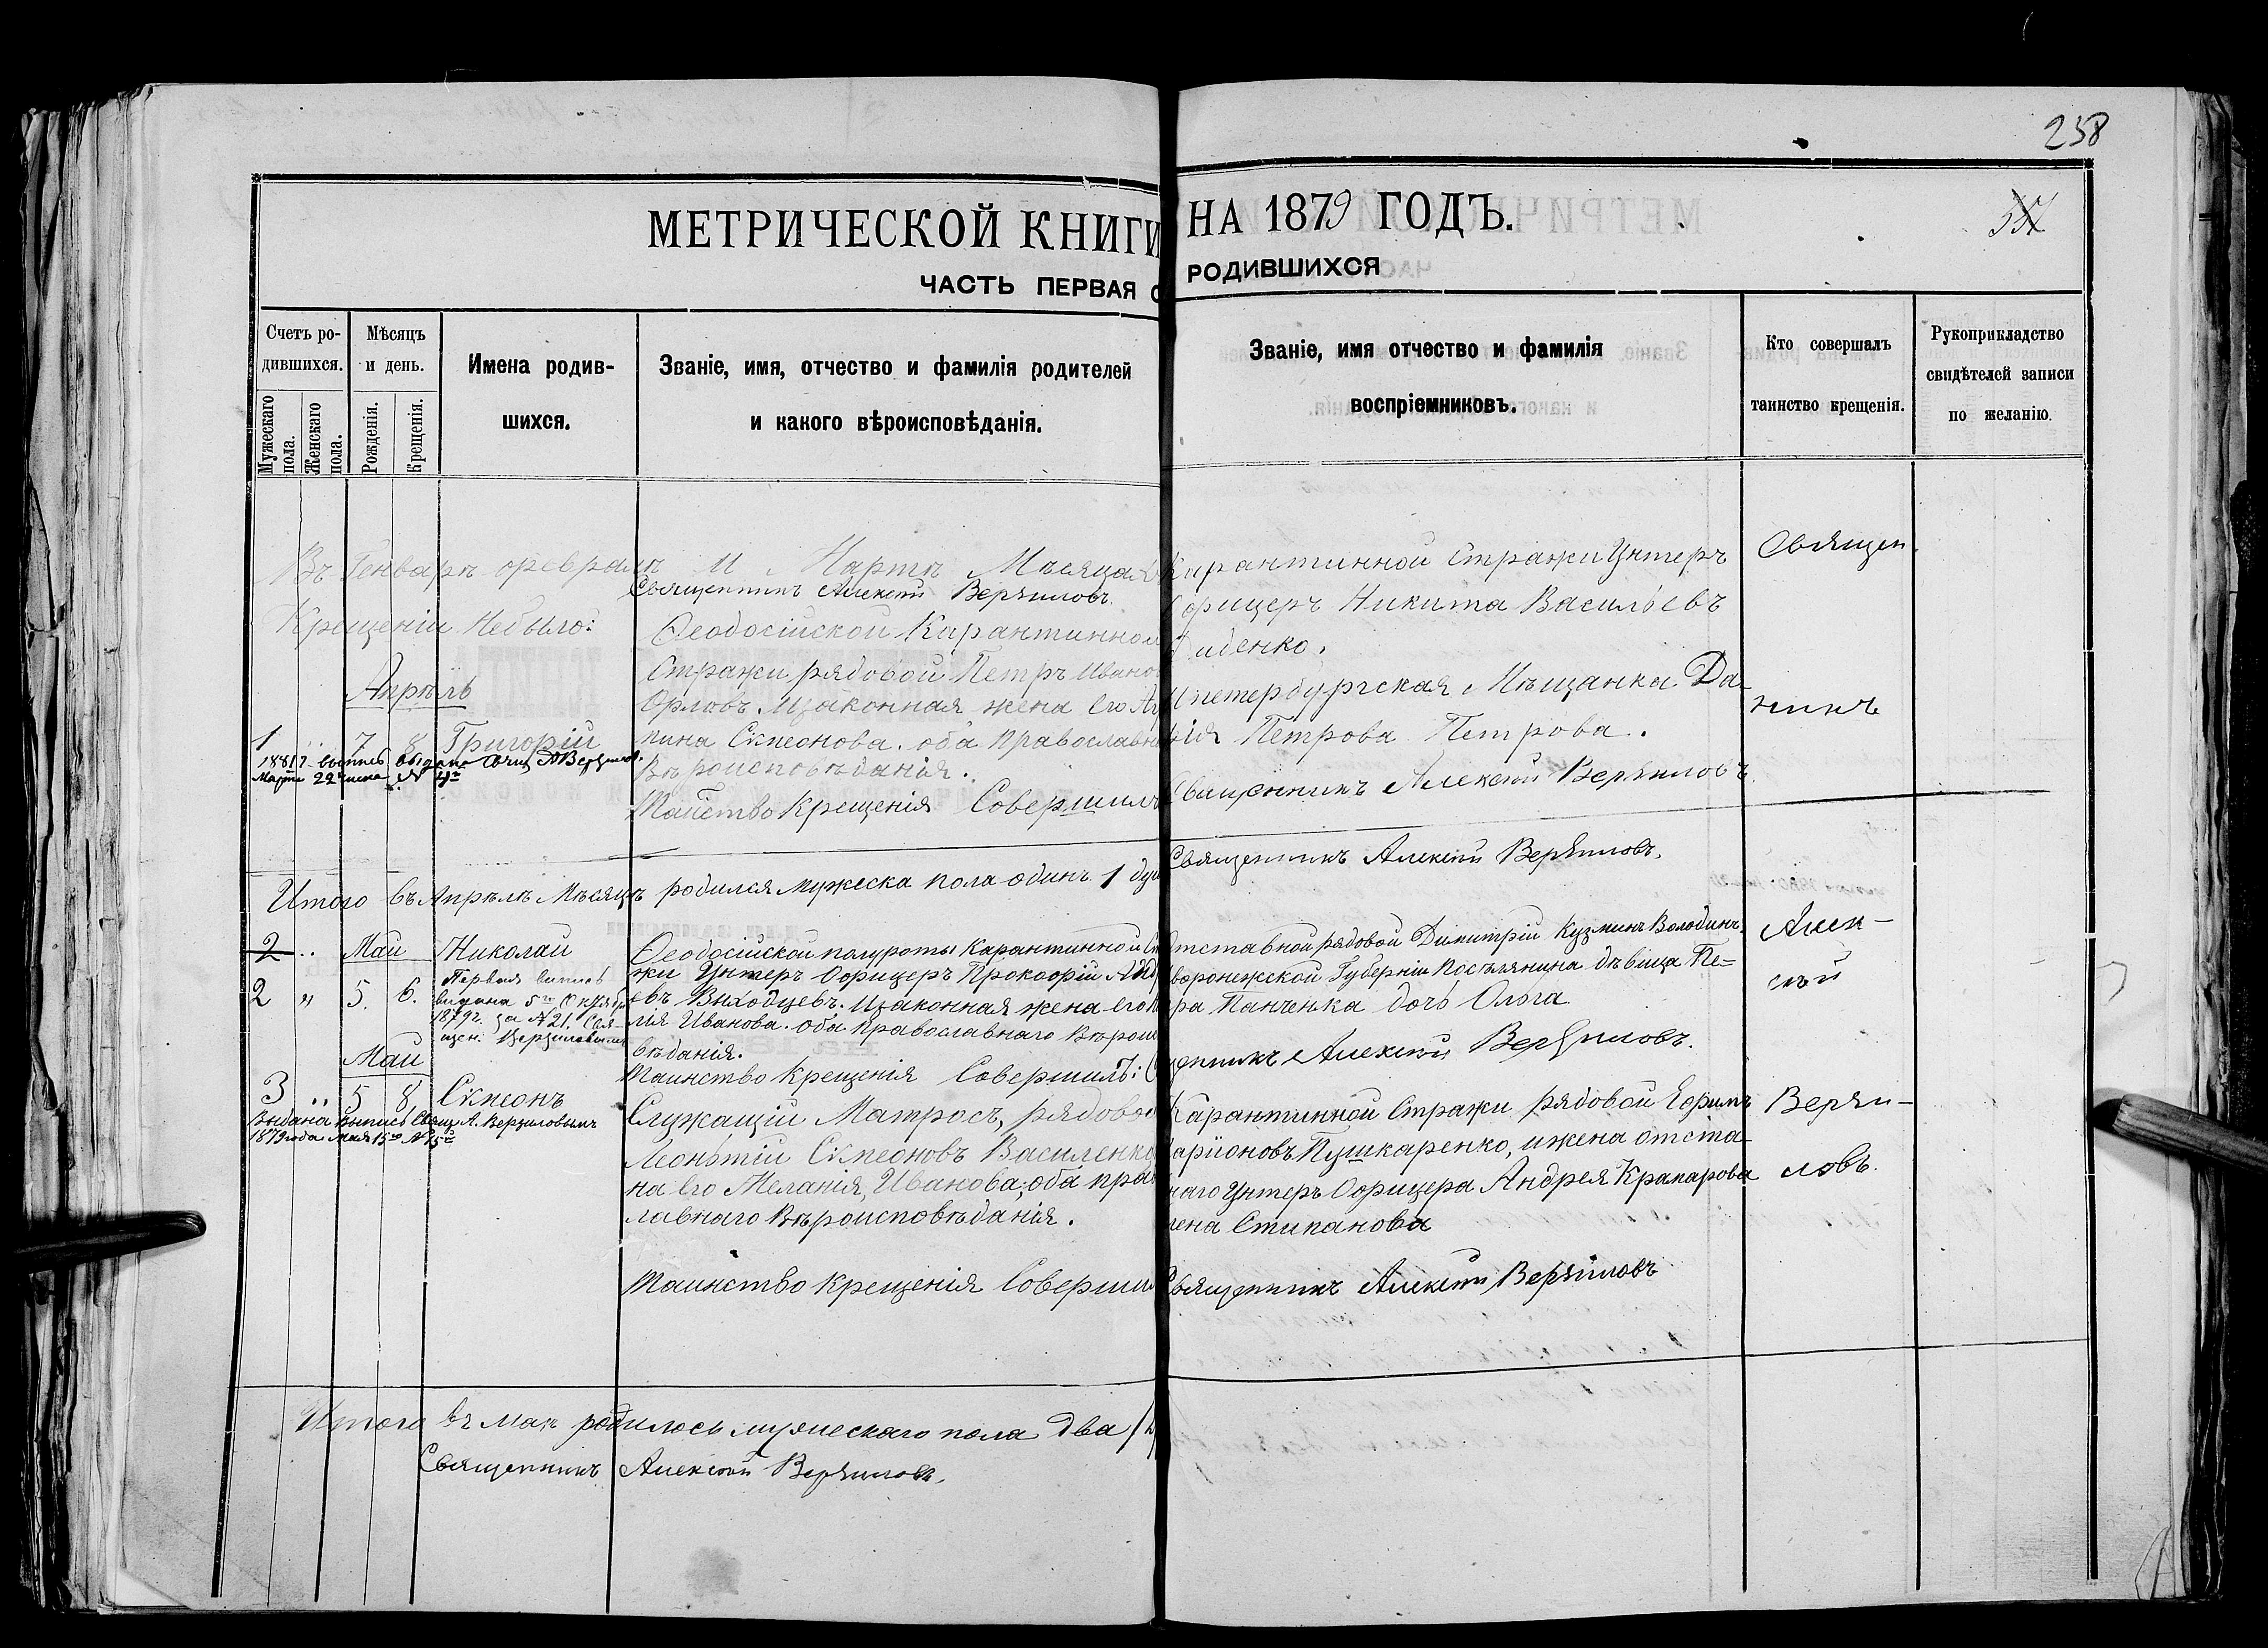 258
МЕТРИЧЕСКОЙ КНИГИ НА 1879 ГОДЪ.
ЧАСТЬ ПЕРВАЯ О РОДИВШИХСЯ
Счетъ ро-
дившихся.
Мужескаго пола.
Женскаго пола.
Мѣсяцъ
и день.
Рожденія.
Крещенія.
Имена родив-
шихся.
Званіе, имя, отчество и фамилія родителей
и какого вѣроисповѣданія.
Званіе, имя отчество и фамилія
воспріемниковъ.
Кто совершалъ
таинство крещенія.
Рукоприкладство
свидѣтелей записи
по желанію.
Въ Генварѣ февралѣ и Мартѣ Мѣсяца
Священникъ Алексѣй Верзиловъ.
Крещеніи Небыло:
Апрѣль
1 .. 7 8 Григорій
выпись выдана Свящ А Верзилов.
Марта 22 числа №
Ѳеодосійской Карантинной
Стражи рядовой Петръ Ивано
Орловъ Изаконная жена Его Аг
пина Симеонова. оба Православна
Вѣроисповѣданія.
Таинство Крещенія Совершилъ
Карантинной Стражи Унтеръ
Офицеръ Никита Васильевъ
Диденко.
петербургская Мѣщанка Да-
рія Петрова Петрова.
Священникъ Алексѣй Верзиловъ
Священ
никъ
Итого въ Апрѣлѣ Мѣсяцѣ родился мужеска пола одинъ 1 ду
Священникъ Алексѣй Верзиловъ.
2 .. Май Николай
2 " 5. 6.
Первая выпись
видана 5го Октяб
1879г. за № 21. Свя-
щен. Верзиловымъ
Ѳеодосійской полуроты Карантинной Ст
жи Унтеръ Офицеръ Прокофій Анд
евъ Выходцевъ. Изаконная жена его
лія Иванова. оба православнаго Вѣроис
вѣданія.
Таинство Крещенія Совершилъ: С
Отставной рядовой Димитрій Кузминъ Володинъ,
воронежской Губерніи Поселянина дѣвица Пе=
ра Панченка дочь Ольга
щенникъ Алексѣй Верзиловъ.
Алек-
сѣй
Май
3 .. 5 8 Симеонъ
Выдана Выпись Свящ. А. Верзиловымъ
1879 года Мая 15го № 15й
Служащій Матросъ, рядово
Леонтій Симеоновъ Василенко
на Его Меланія, Иванова; оба пра
лавнаго Вѣроисповѣданія.
Таинство Крещенія Соверши
Карантинной Стражи рядовой Ефимъ
аріоновъ Пушкаренко, ижена отста-
наго Унтеръ Офицера Андрея Крамарова
лена Стипанова
Священникъ Алексѣй Верзиловъ
Верзи-
ловъ.
Итого въ маѣ родилось мужескаго пола два
Священникъ Алексѣй Верзиловъ.